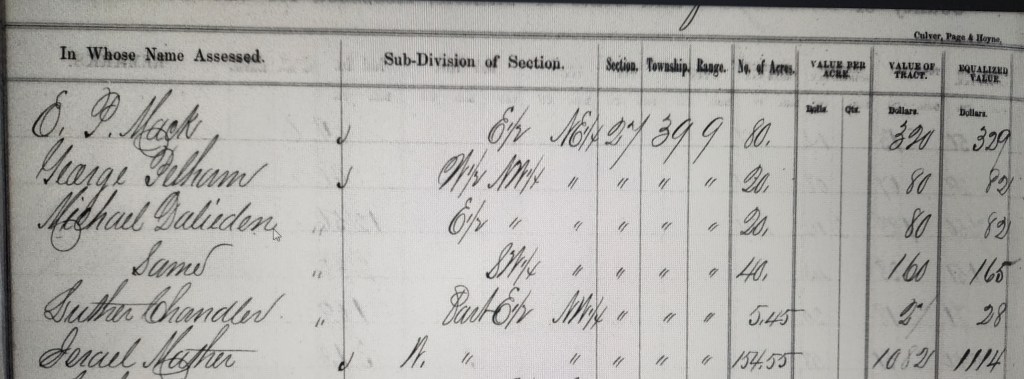 Culver, Page & Hoyne,
In Whose Name Assessed. Sub-Division of Section. Section. Township. Range. No. of Acres. VALUE PER ACRE. VALUE OF TRACT. EQUALIZED VALUE.
Dolls. Cts. Dollars. Dollars.
E. P. Mack E1/2 NE1/4 27 39 9 80. 320 329
George Pelham W1/2 NW1/4 " " " " 20. 80 82
Michael Dalieden E1/2 " " " " " 20. 80 82
Same " SW1/4 " " " " 40. 160 165
Luther Chandler " Part E1/2 NW1/4 " " " 5.45 28
Israel Mather N. " " " " " 154.55 1082 1114